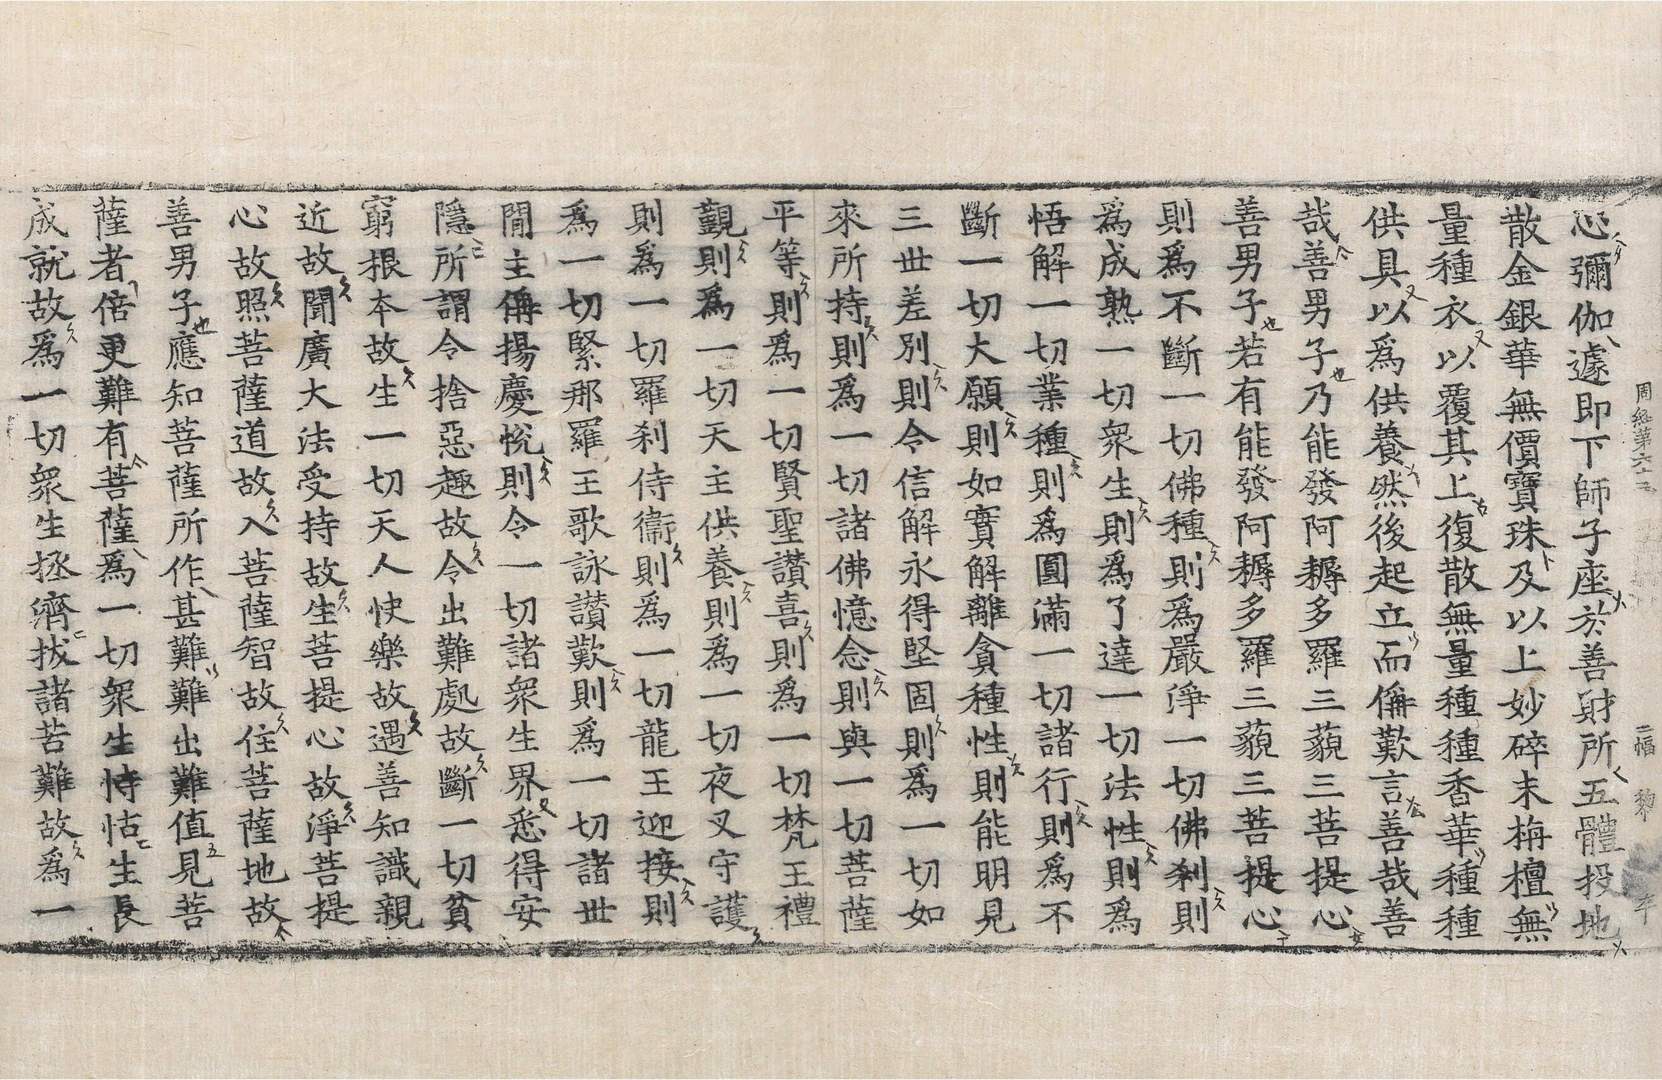 周經第六十二 二幅
心彌伽遽即下師子座於善財所五體投地
散金銀華無價寶珠及以上妙碎末栴檀無
量種衣以覆其上復散無量種種香華種種
供具以為供養然後起立而偁歎言善哉善
哉善男子乃能發阿耨多羅三藐三菩提心
善男子若有能發阿耨多羅三藐三菩提心
則為不斷一切佛種則為嚴淨一切佛剎則
為成熟一切衆生則為了達一切法性則為
悟解一切業種則為圓滿一切諸行則為不
斷一切大願則如實解離貪種性則能明見
三世差別則令信解永得堅固則為一切如
來所持則為一切諸佛憶念則與一切菩薩
平等則為一切賢聖讃喜則為一切梵王禮
覲則為一切天主供養則為一切夜叉守護
則為一切羅剎侍衞則為一切龍王迎接則
為一切緊那羅王歌詠讃歎則為一切諸世
閒主偁揚慶悅則令一切諸衆生界悉得安
隱所謂令捨惡趣故令出難處故斷一切貧
窮根本故生一切天人快樂故遇善知識親
近故聞廣大法受持故生菩提心故淨菩提
心故照菩薩道故入菩薩智故住菩薩地故
善男子應知菩薩所作甚難難出難值見菩
薩者倍更難有菩薩為一切衆生恃怙生長
成就故為一切衆生拯濟拔諸苦難故為一